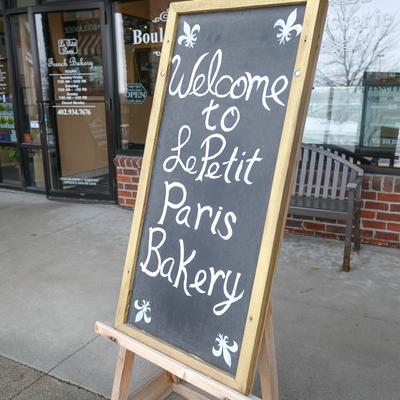 Welcome
to
Le Petit
Paris
Bakery
Le Petit
Paris
French Bakery
Closed Monday
402.934.7676
Boul
OPEN